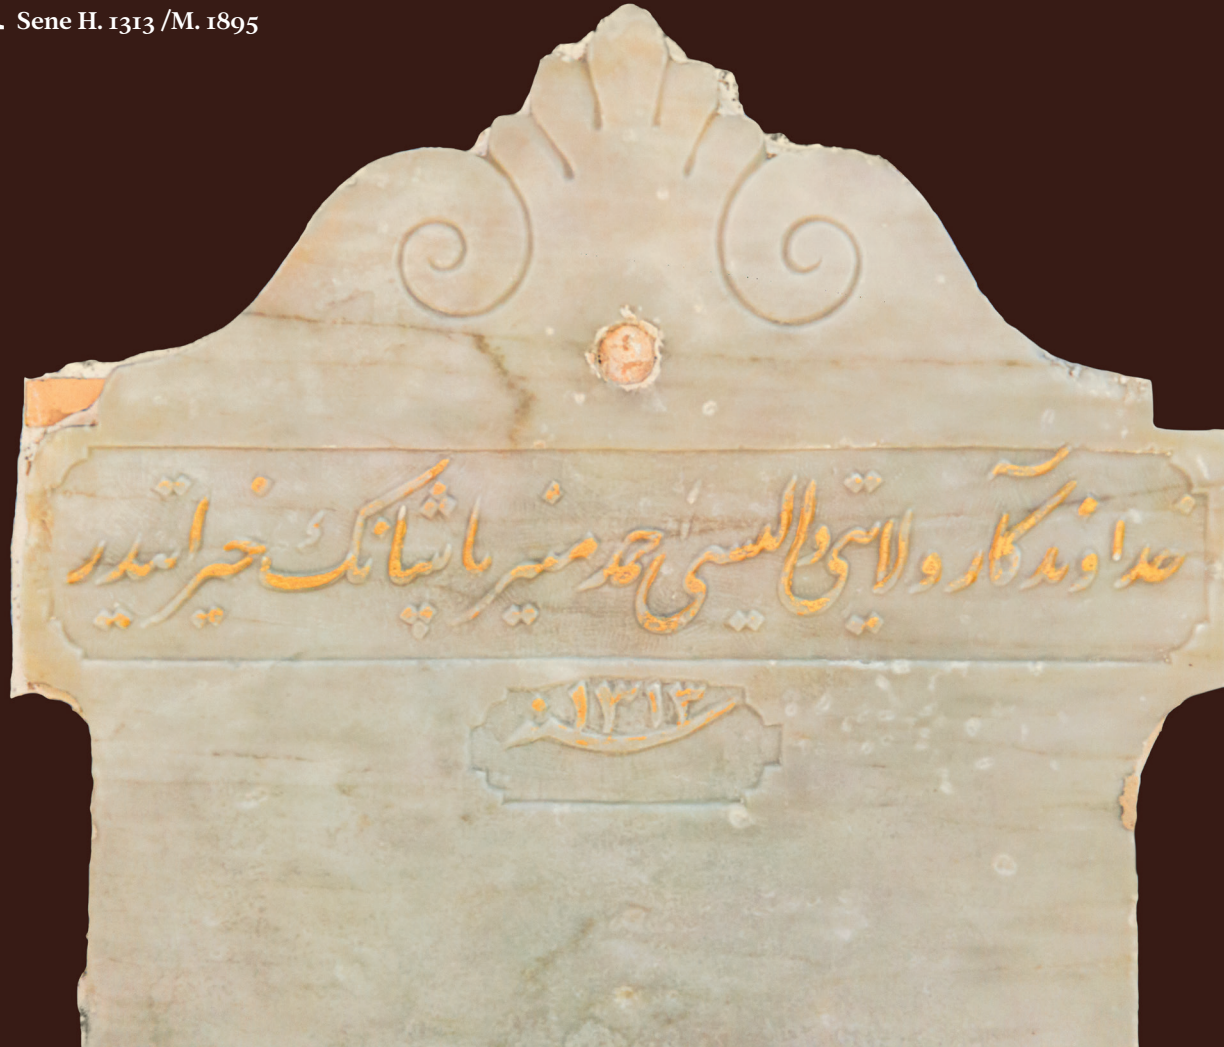 Sene H. 1313 /M. 1895
خداوندگار ولایتی والیسی احمد منیر پاشانك خیراتیدر
سنه ١٣١٣